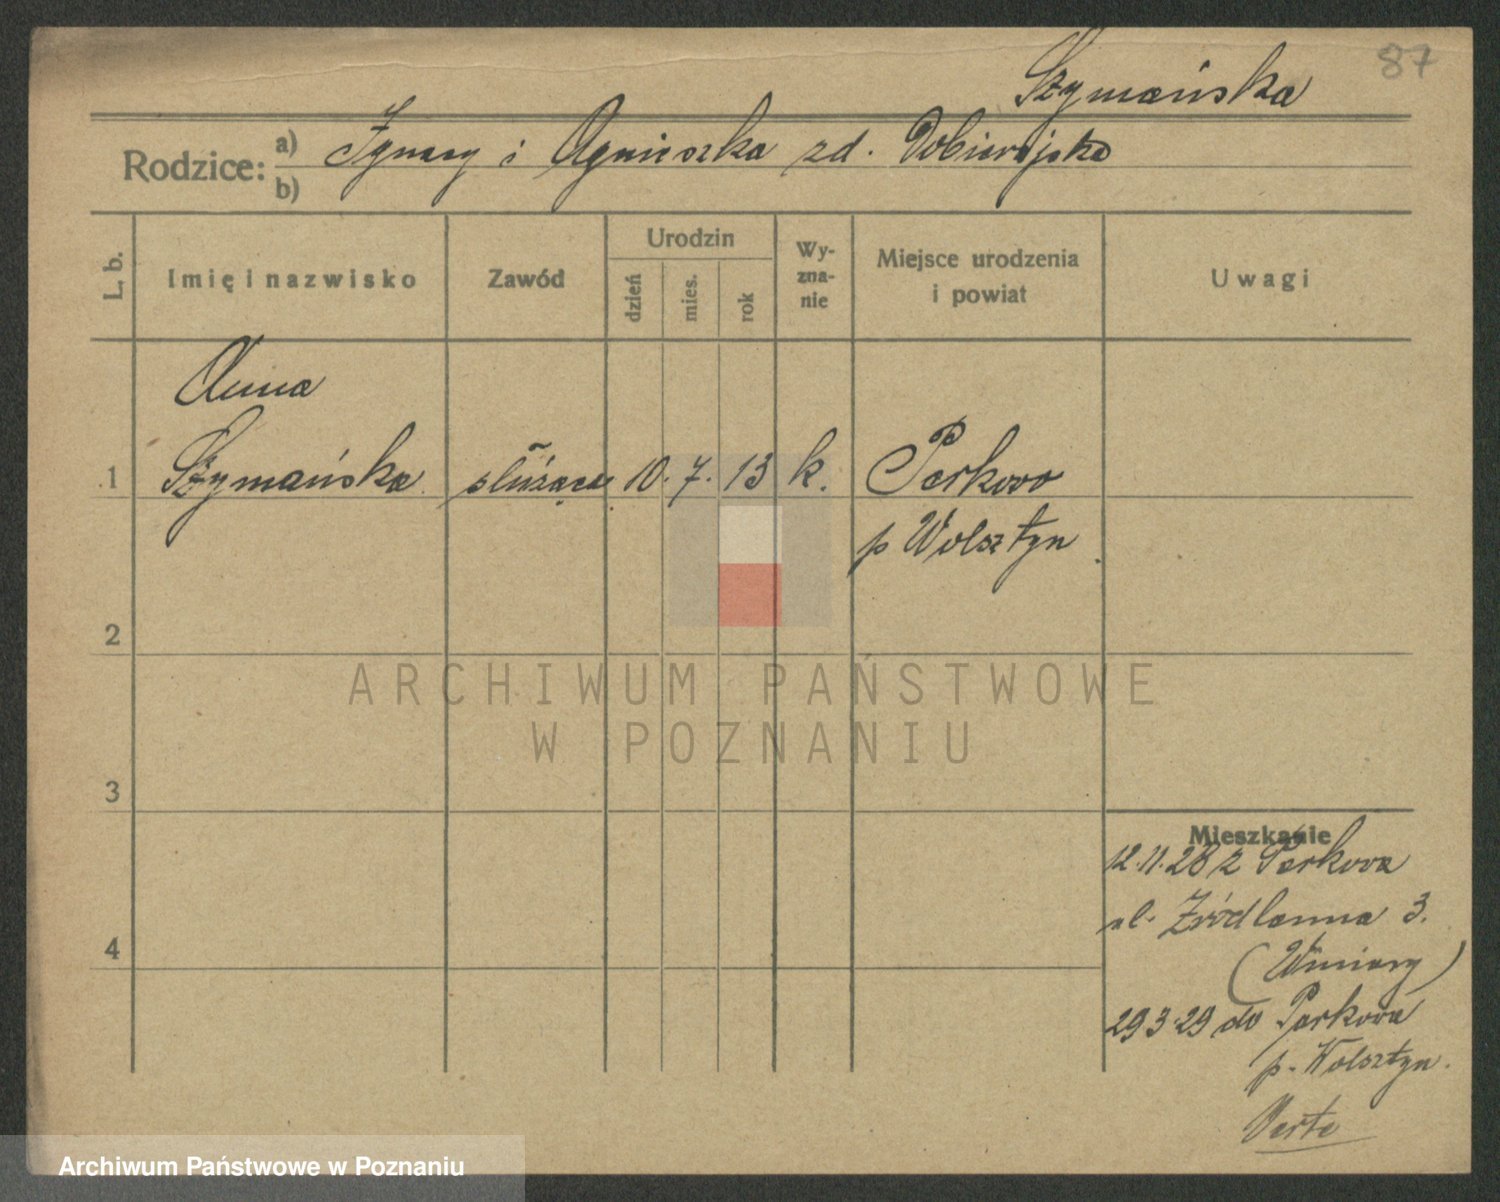 87
Szymańska
Rodzice: a) Ignacy i Agnieszka zd.
b)
L. b. Imię i nazwisko Zawód Urodzin dzień mies. rok Wy-zna-nie Miejsce urodzenia i powiat Uwagi
Anna
1 Szymańska służąca 10. 7. 13 k. Parkowo
p Wolsztyn
2
3
4
Mieszkanie
12.11.28 z Parkowa
ul. Źródlanna 3.
(Winiary)
29 3 29 do Parkowa
p. Wolsztyn.
Verte
ARCHIWUM PAŃSTWOWE
W POZNANIU
Archiwum Państwowe w Poznaniu